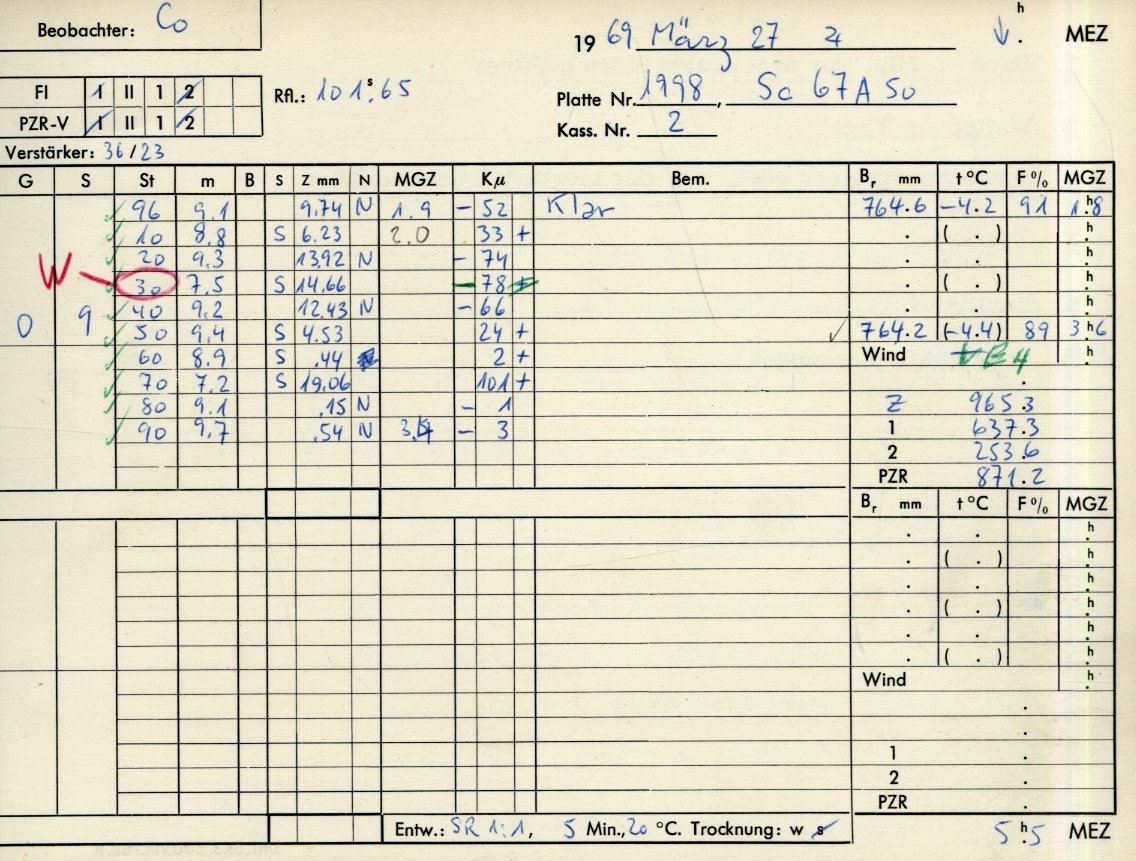 Beobachter: Co
19 69 März 27 h . MEZ
FI 1 II 1 2
PZR-V 1 II 1 2
Rfl.: 101ˢ.65
Platte Nr. 1998, Sc 67A So
Kass. Nr. 2
Verstärker: 36/23
G S St m B S Z mm N MGZ Kμ Bem. Bᵣ mm t °C F % MGZ
96 9.1 9.74 N 1.9 - 52 Klar 764.6 -4.2 91 1ʰ.8
10 8.8 S 6.23 2.0 33 + . ( . ) h
20 9.3 13.92 N - 74 . . h
W 30 7.5 S 14.66 - 78 + . ( . ) h
40 9.2 12.43 N - 66 . . h
0 9 50 9.4 S 4.53 24 + 764.2 (-4.4) 89 3ʰ.6
60 8.9 S .44 2 + Wind E 4 h
70 7.2 S 19.06 101 + .
80 9.1 .15 N - 1 Z 965.3
90 9.7 .54 N - 3 1 637.3
2 253.6
PZR 871.2
Bᵣ mm t °C F % MGZ
. . h
. ( . ) h
. . h
. ( . ) h
. . h
. ( . ) h
Wind h
.
.
1 .
2 .
PZR .
Entw.: SR 1:1, 5 Min., 20 °C. Trocknung: w s 5ʰ.5 MEZ